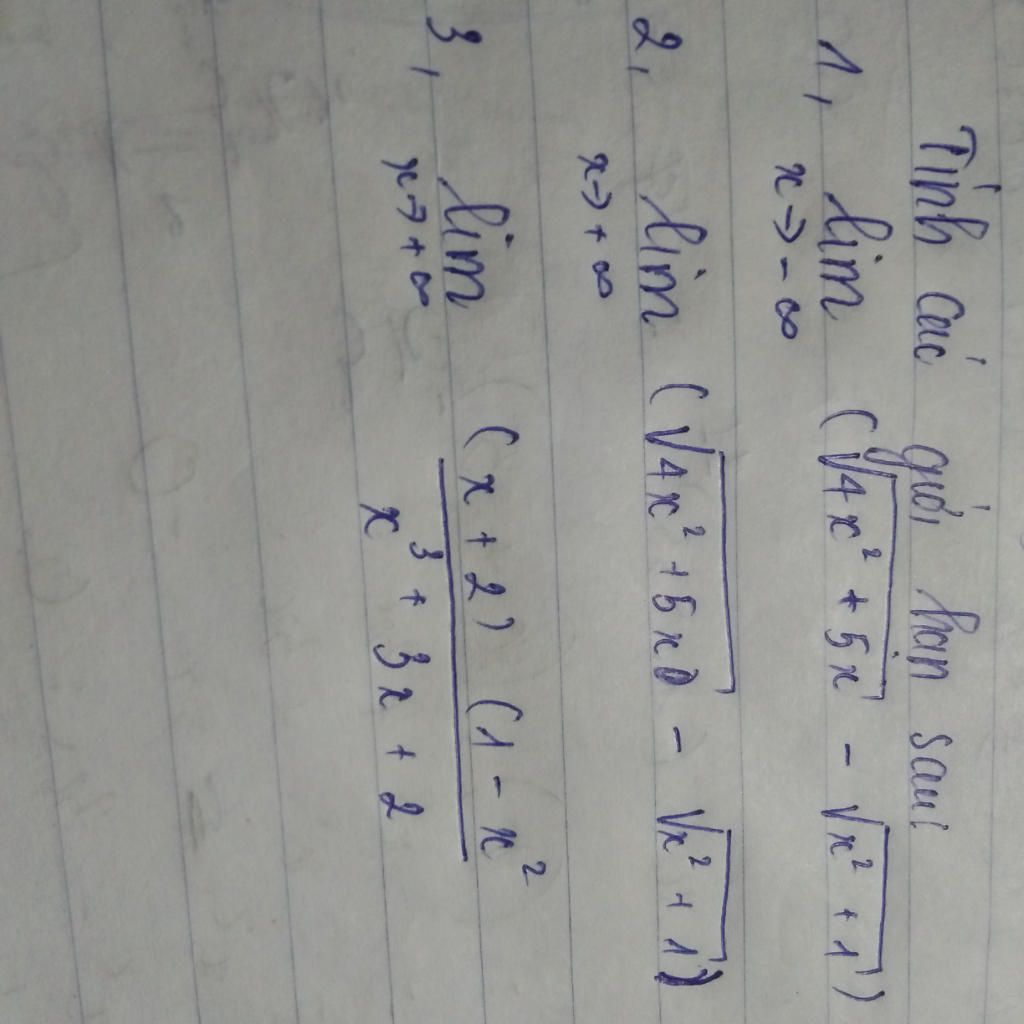 Tính các giới hạn sau:
1, lim (√4x² + 5x - √x² + 1)
x→-∞
2, lim (√4x² + 5x - √x² + 1)
x→+∞
3, lim (x + 2) (1 - x²
x→+∞ x³ + 3x + 2